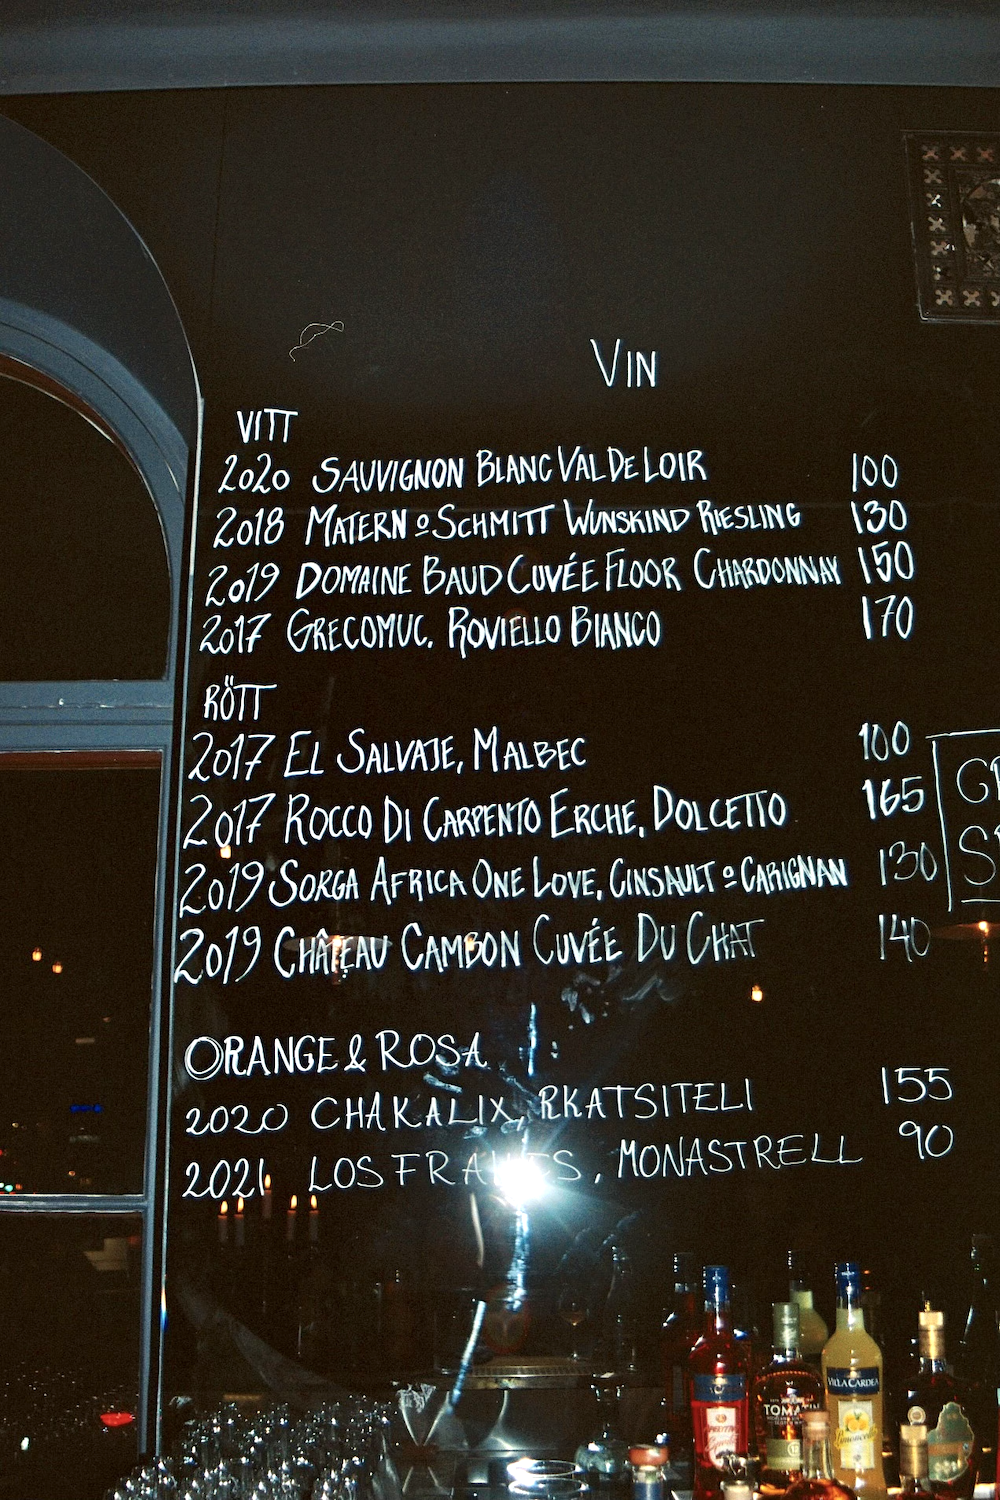 VIN
VITT
2020 SAUVIGNON BLANC VAL DE LOIR 100
2018 MATERN o SCHMITT WUNSKIND RIESLING 130
2019 DOMAINE BAUD CUVÉE FLOOR CHARDONNAY 150
2017 GRECOMUC, ROVIELLO BIANCO 170
RÖTT
2017 EL SALVAJE, MALBEC 100
2017 ROCCO DI CARPENTO ERCHE, DOLCETTO 165
2019 SORGA AFRICA ONE LOVE, CINSAULT o CARIGNAN 130
2019 CHÂTEAU CAMBON CUVÉE DU CHAT 140
ORANGE & ROSA
2020 CHAKALIX, RKATSITELI 155
2021 LOS , MONASTRELL 90
VILLA CARDEA
Limoncello
TOMATIN
12